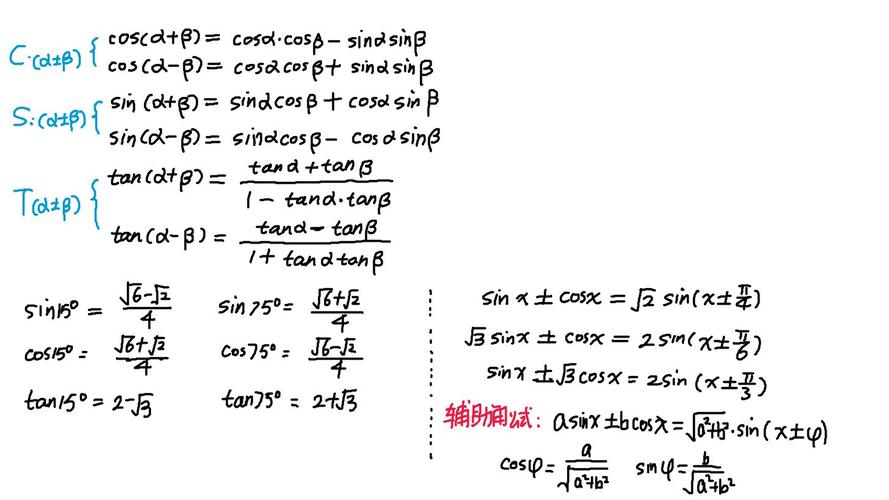 C:(α±β) { cos(α+β) = cosα·cosβ - sinαsinβ
cos(α-β) = cosαcosβ + sinαsinβ
S:(α±β) { sin(α+β) = sinαcosβ + cosαsinβ
sin(α-β) = sinαcosβ - cosαsinβ
T(α±β) { tan(α+β) = (tanα+tanβ)/(1-tanα·tanβ)
tan(α-β) = (tanα-tanβ)/(1+tanαtanβ)
sin15° = (√6-√2)/4 sin75° = (√6+√2)/4
cos15° = (√6+√2)/4 cos75° = (√6-√2)/4
tan15° = 2-√3 tan75° = 2+√3
sinx ± cosx = √2 sin(x±π/4)
√3 sinx ± cosx = 2sin(x±π/6)
sinx ± √3cosx = 2sin(x±π/3)
辅助角公式: asinx±bcosx = √(a²+b²)·sin(x±φ)
cosφ = a/√(a²+b²) sinφ = b/√(a²+b²)